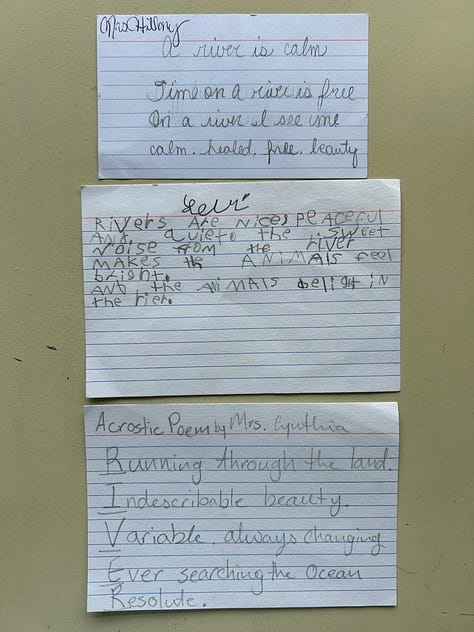 Mrs. Hillary
A river is calm
Time on a river is free
On a river I see me
calm. healed. free. beauty
Levi
RiVERS ARE NiCE, PEACEFUL
AND QUiET. the sweet
NOiSE FROM the RiVER
MAKES the ANiMALS FEEL
bright.
AND the ANiMALS DeLight iN
the rier.
Acrostic Poem by Mrs. Cynthia
Running through the land.
Indescribable beauty.
Variable. always changing
Ever searching the Ocean
Resolute.